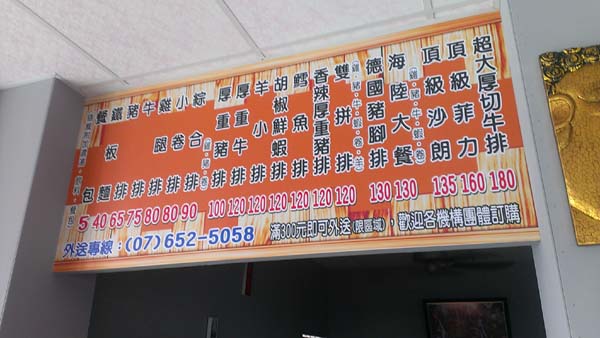 超大厚切牛排 180
頂級菲力 160
頂級沙朗 135
海陸大餐 (雞、豬、牛、蝦、卷) 130
德國豬腳排 130
雙拼 (雞、豬、牛、蝦、卷、羊) 排 120
香辣厚重豬排 120
鱈魚排 120
胡椒鮮蝦排 120
羊小排 120
厚重牛排 120
厚重豬排 100
綜合 (雞、豬、卷) 排 90
小卷排 80
雞腿排 80
牛排 75
豬排 65
鐵板麵 40
包 5
外送專線：(07)652-5058
滿300元即可外送(限區域)，歡迎各機構團體訂購